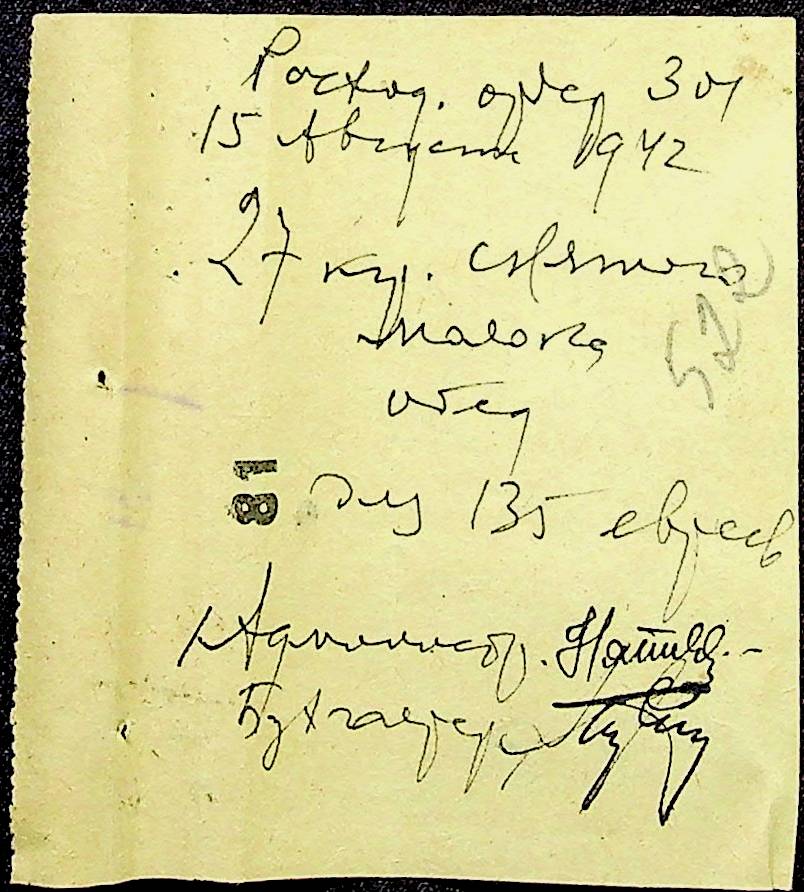 Расход. ордер 301
15 Августа 1942
27 кгр. снятого
молока
обед
для 135 евреев
Администр.
Бухгалтер
81
522